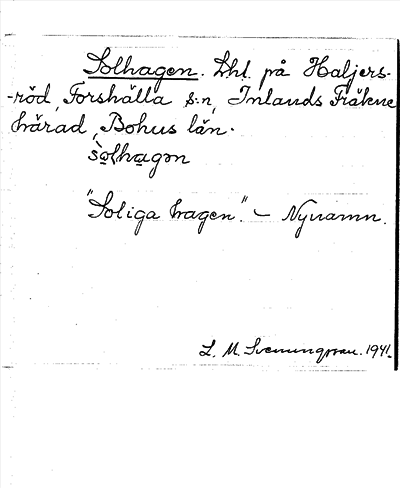 Solhagen. Lht. på Haljers-
-röd, Forshälla s:n, Inlands Fräkne
härad, Bohus län.
sòlhagən
"Soliga hagen". – Nynamn.
L. M. Svenungsson. 1941.